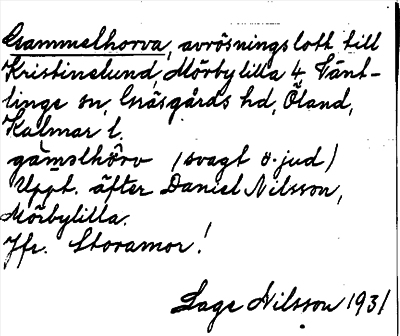 Gammelhorva, avrösningslott till
Kristinelund, Mörbylilla 4, Vänt-
linge sn, Gräsgårds hd, Öland,
Kalmar l.
gämelhôrv (svagt ö-ljud)
Uppt. äfter Daniel Nilsson,
Mörbylilla.
Jfr. Storamor!
Lage Nilsson 1931